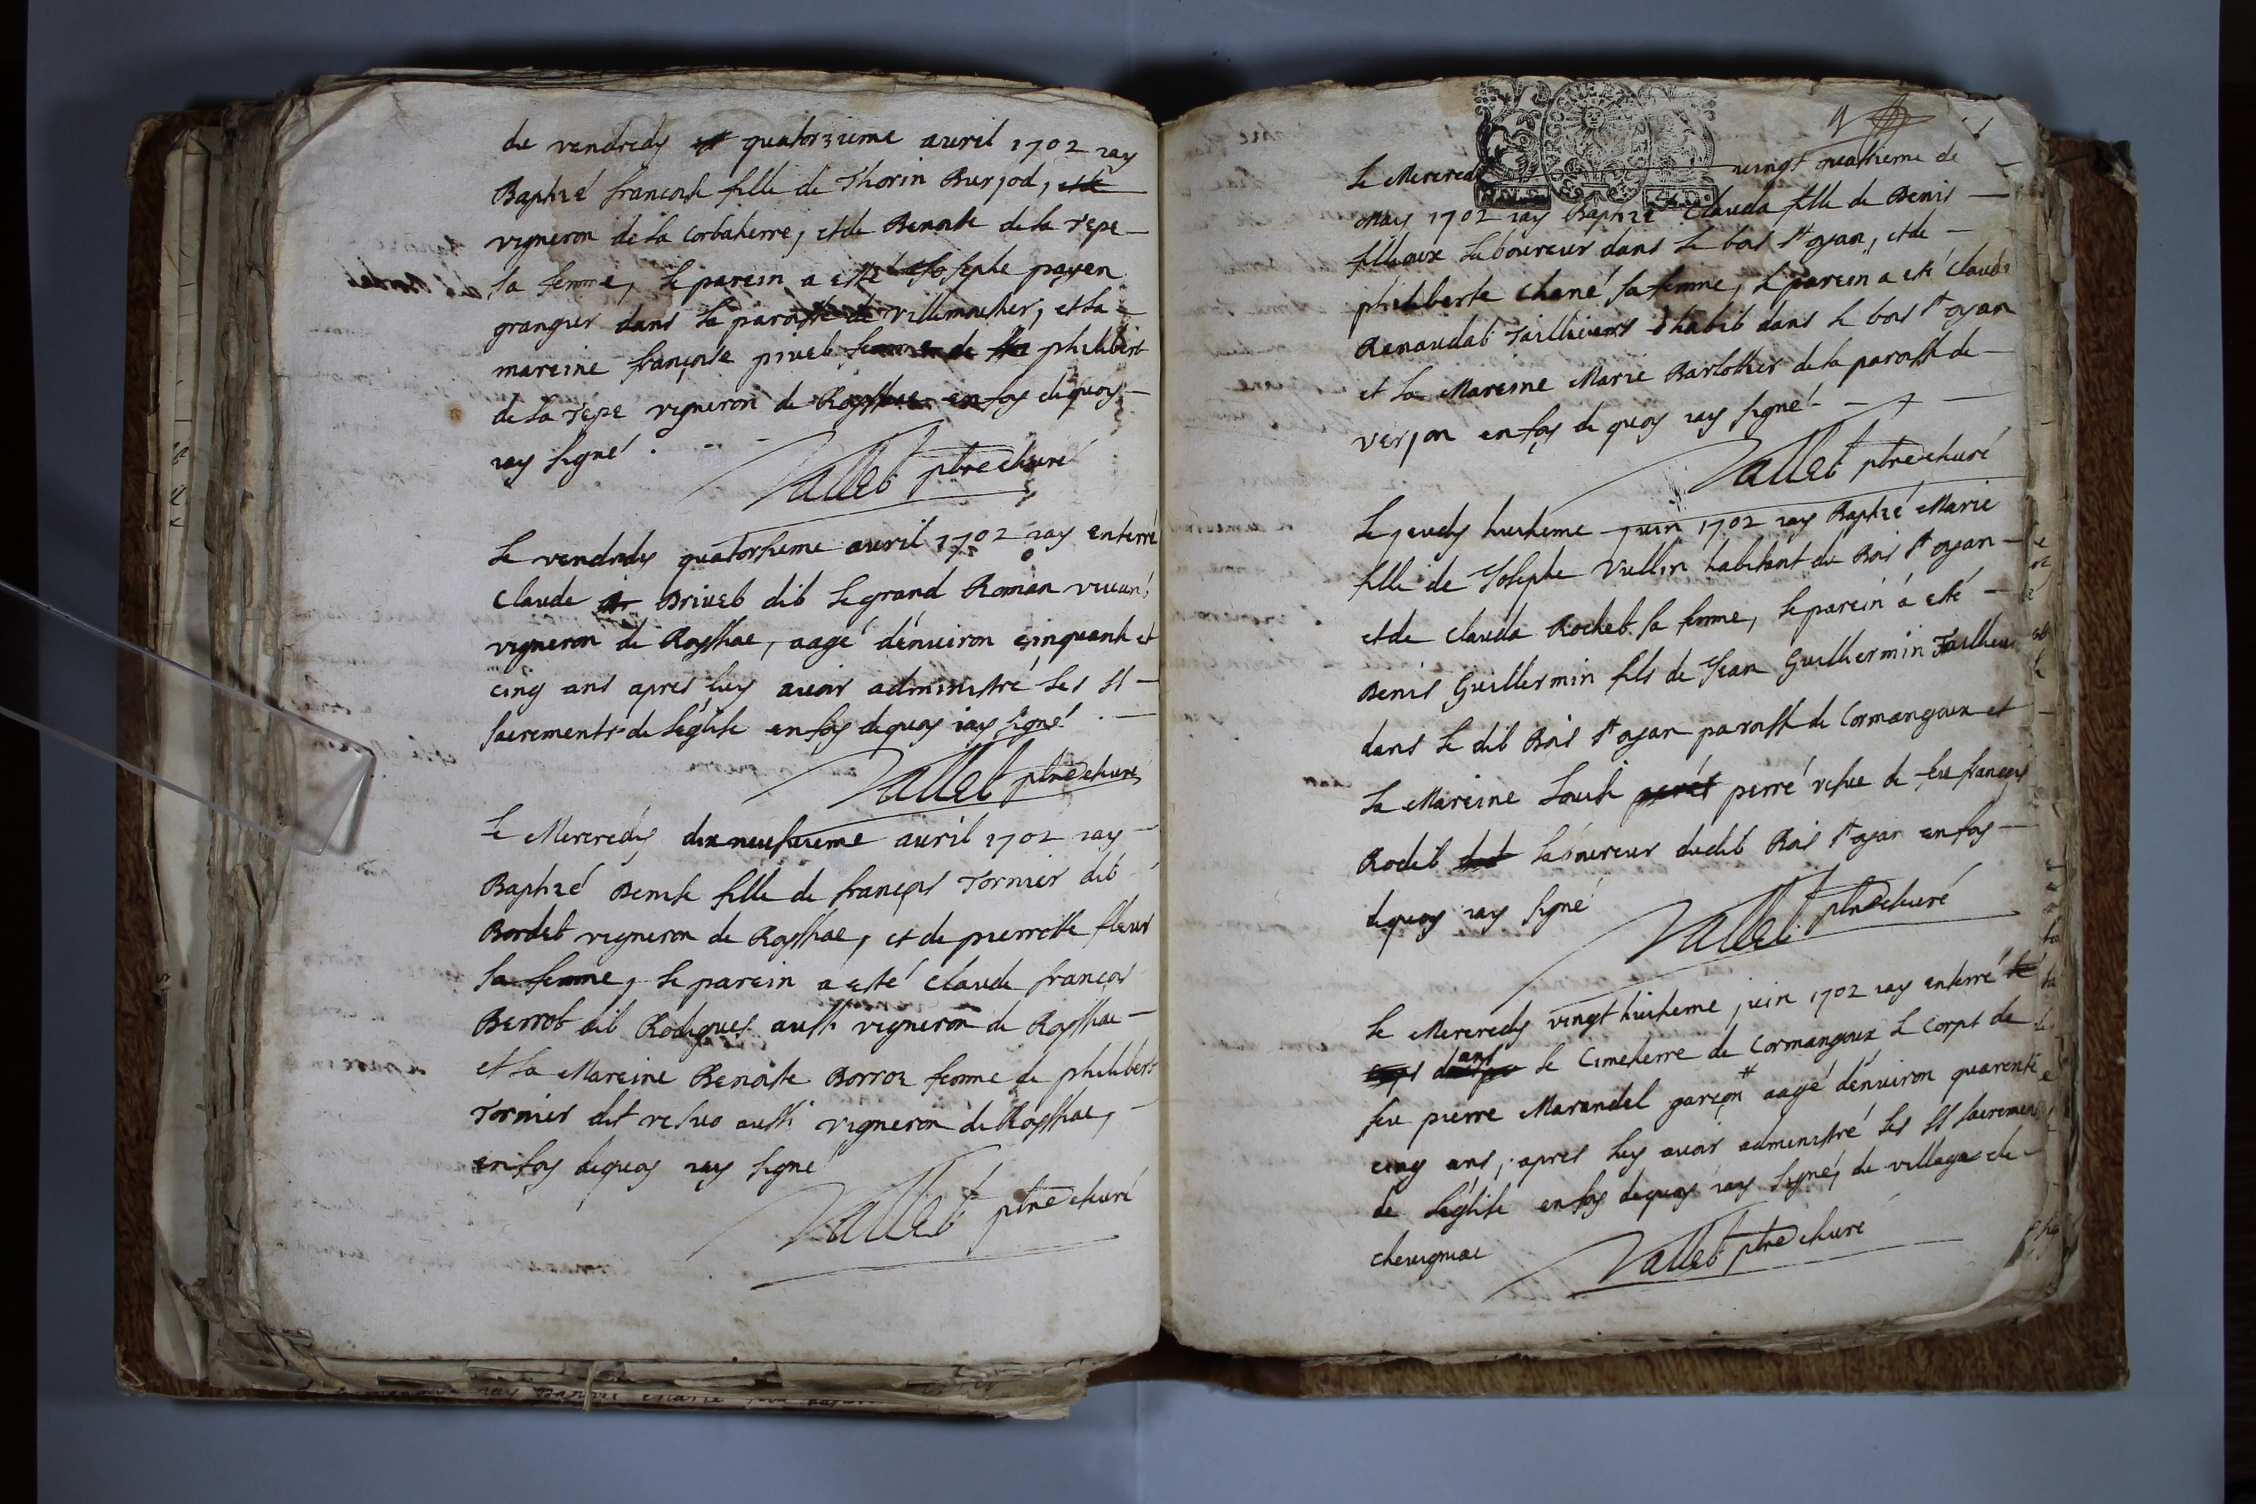 de vendredy quatorzieme avril 1702 jay
Baptizé francoise fille de Thorin Burjod,
vigneron de la corbatierre, et de Benoite de la repe
sa femme, le parein a esté Josephe payen
granger dans la paroisse de villemoutier, et la
mareine françoise pivet philibert
de la repe vigneron de Roissiac en foy dequoy
jay signé
Vallet ptre churé
le vendredy quatorsieme avril 1702 jay enterré
claude Brivet dit le grand Roman vivant
vigneron de Roissiac, aagé dénviron cinquante et
cinq ans apres luy avoir administré les SS
sacrements de léglise en foy dequoy jay signé
Vallet ptre churé
le Mercredy dixneufvieme avril 1702 jay
Baptizé Denise fille de françois Tornier dit
Bordet vigneron de Roissiac, et de pierrotte fleur
sa femme, le parein a esté claude françois
Berrot dit Rodigues aussi vigneron de Roissiac
et la Mareine Benoite Borron femme de philibert
Tornier dit aussi vigneron de Roissiac,
en foy dequoy jay signé
Vallet ptre churé
le Mercredy vingt quatrieme de
May 1702 jay Baptizé Clauda fille de Denis
fillioux laboureur dans le bois st oyan, et de
philiberte chané sa femme, le parein a eté claude
Renaudat Taillieurs dhabit dans le bois st oyan
et la Mareine Marie Barlottier de la paroisse de
verjon en foy de quoy jay signé
Vallet ptre churé
le jeudy huitieme juin 1702 jay Baptizé Marie
fille de Joseph Vullin habitant du Bois st oyan
et de clauda Rochet sa femme, le parein á esté
Denis Guillermin fils de Jean Guilhermin Tailleur
dans le dit Bois st oyan paroisse de Cormangoux et
la Mareine Louise perré vefve de feu françois
Rodet laboureur dudit Bois st oyan en foy
dequoy jay signé
Vallet ptre churé
le Mercredy vingt huitieme juin 1702 jay enterré
dans le Cimetierre de Cormangoux le corps de
feu pierre Marandel garçon # aagé dénviron quarente
cinq ans, apres luy avoir administré les SS sacrement
de léglise en foy dequoy jay signé, du village de
chevigniac
Vallet ptre churé